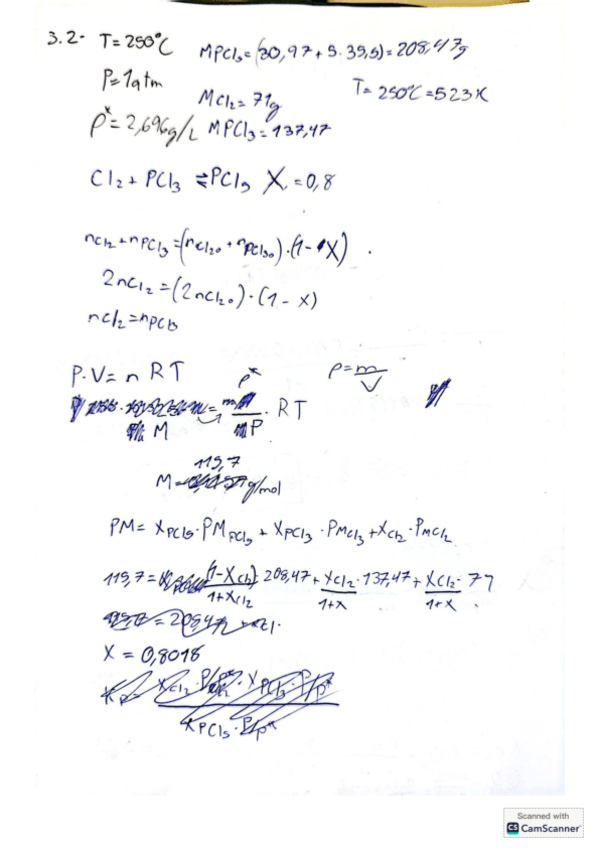 3.2- T=250°C MPCl5=(30,97+5.35,5)=208,47g
P=1atm MCl2=71g T=250°C=523K
ρ*=2,696g/L MPCl3=137,47
Cl2 + PCl3 ⇌ PCl5 X=0,8
nCl2+nPCl3=(nCl20+nPCl30)·(1-X)
2nCl2=(2nCl20)·(1-x)
nCl2=nPCl3
P·V=n RT ρ* ρ=m/V
M P · RT
M= 115,7 g/mol
PM= XPCl5·PMPCl5+XPCl3·PMCl3+XCl2·PMCl2
115,7= (1-XCl2)/1+XCl2 · 208,47+ XCl2/1+X ·137,47+ XCl2/1+X · 71
X = 0,8018
Scanned with
CS CamScanner